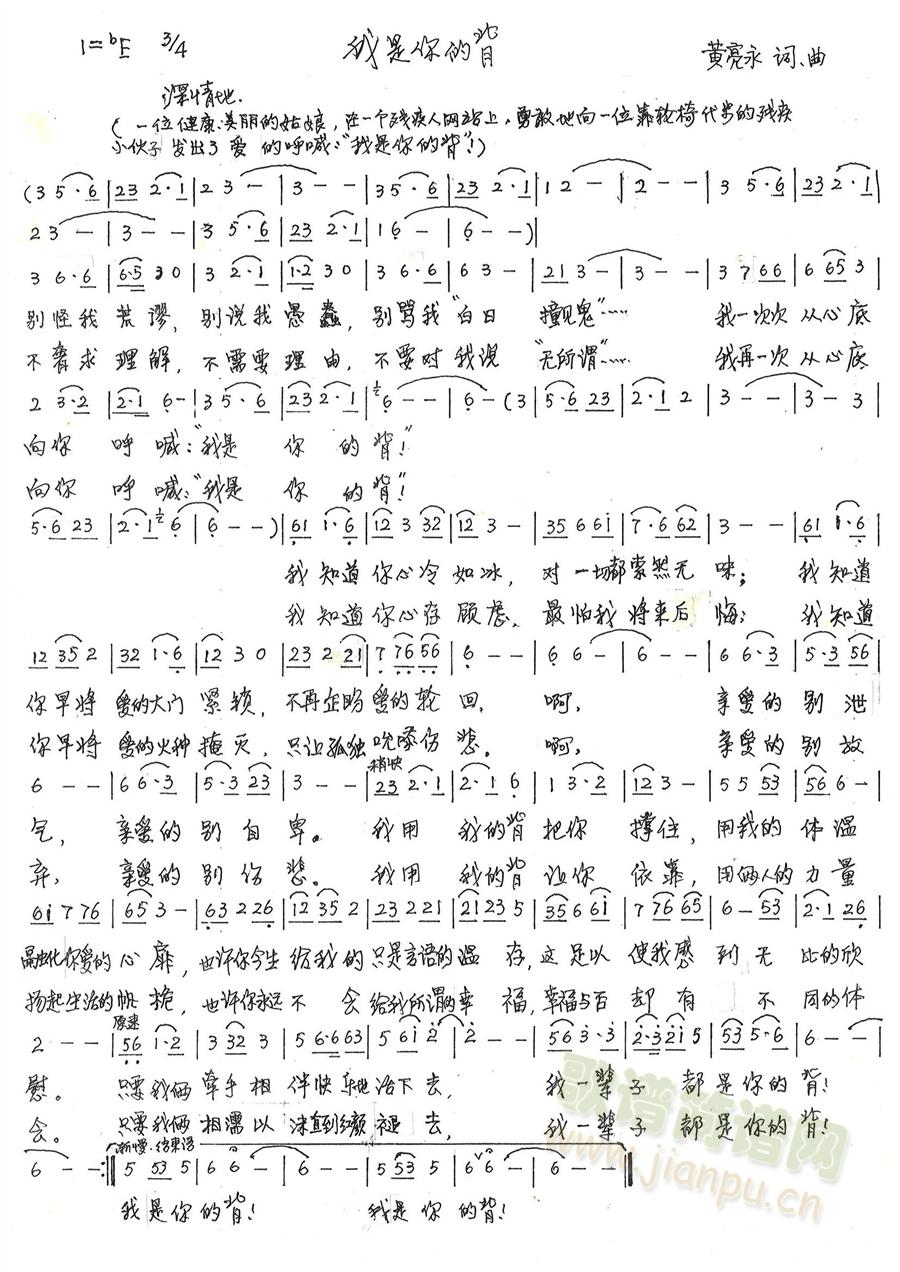 1=ᵇE 3/4 我是你的背 黄亮永 词、曲
深情地.
(一位健康、美丽的姑娘,在一个残疾人网站上,勇敢地向一位靠轮椅代步的残疾
小伙子发出了爱的呼喊:"我是你的背"!)
(3 5·6 | 23 2·1 | 2 3 — | 3 — — | 35·6 | 23 2·1 | 12 — | 2 — — | 3 5·6 | 23 2·1 |
23 — | 3 — — | 3 5·6 | 23 2·1 | 16 — | 6 — —) |
3 6·6 | 6·5 30 | 3 2·1 | 1·2 30 | 3 6·6 | 6 3 — | 21 3 — | 3 — — | 3 7 66 | 6 65 3 |
别怪我 荒谬, 别说我 愚蠢, 别骂我"白日 撞见鬼"…… 我一次次 从心底
不奢求 理解, 不需要 理由, 不要对 我说 "无所谓"…… 我再一次 从心底
2 3·2 | 2·1 6 — | 3 5·6 | 23 2·1 | 6 — — | 6 — — (3 | 5·6 23 | 2·1 2 | 3 — — | 3 — 3 |
向你 呼 喊:"我是 你 的 背!"
向你 呼 喊:"我是 你 的 背"!
5·6 23 | 2·1 6 | 6 — —) | 61 1·6 | 12 3 32 | 12 3 — | 35 6 6i | 7·6 62 | 3 — — | 61 1·6 |
我 知道 你心冷 如冰, 对 一切都索然无 味; 我 知道
我 知道 你心存 顾虑, 最怕我 将来后 悔; 我 知道
12 35 2 | 32 1·6 | 12 3 0 | 23 2 21 | 7 76 56 | 6 — — | 6 6 — | 6 — — | 6 6·3 | 5·3 56 |
你早将 爱的大门 紧锁, 不再企盼 爱的轮 回, 啊, 亲爱的 别 泄
你早将 爱的火种 掩灭, 只让孤独 吮啄伤 悲。 啊, 亲爱的 别放
稍快
6 — — | 6 6·3 | 5·3 23 | 3 — — | 23 2·1 | 2·1 6 | 1 3·2 | 12 3 — | 5 5 53 | 56 6 — |
气, 亲爱的 别自 卑。 我用 我的背 把你 撑住, 用我的 体温
弃, 亲爱的 别伤 悲。 我用 我的背 让你 依靠, 用俩人的力量
6i 7 76 | 65 3 — | 63 2 26 | 12 35 2 | 23 2 21 | 21 23 5 | 35 6 6i | 7 76 65 | 6 — 53 | 2·1 26 |
融化你爱的 心 扉, 也许你今生 给我的 只是言语的温 存,这 是以 使我感 到 无 比的欣
扬起生活的帆 桅, 也许你永远 不 会 给我所谓的幸 福,幸福与否 却 有 不 同的体
原速
2 — — | 56 1·2 | 3 32 3 | 5 6·6 63 | 5 6i 2 | 2 — — | 56 3·3 | 2·3 2i 5 | 53 5·6 | 6 — — |
慰。 只要我俩 牵手 相 伴快乐地活下 去, 我一辈 子 都 是你的 背!
会。 只要我俩 相濡 以 沫直到红颜 褪 去, 我一辈 子 都 是你的 背!
渐慢·结束语
6 — — :‖ 5 53 5 | 6 6 — | 6 — — | 5 53 5 | 6 6 — | 6 — — ‖
我 是 你 的 背! 我是 你 的 背!
歌谱简谱网
www.jianpu.cn